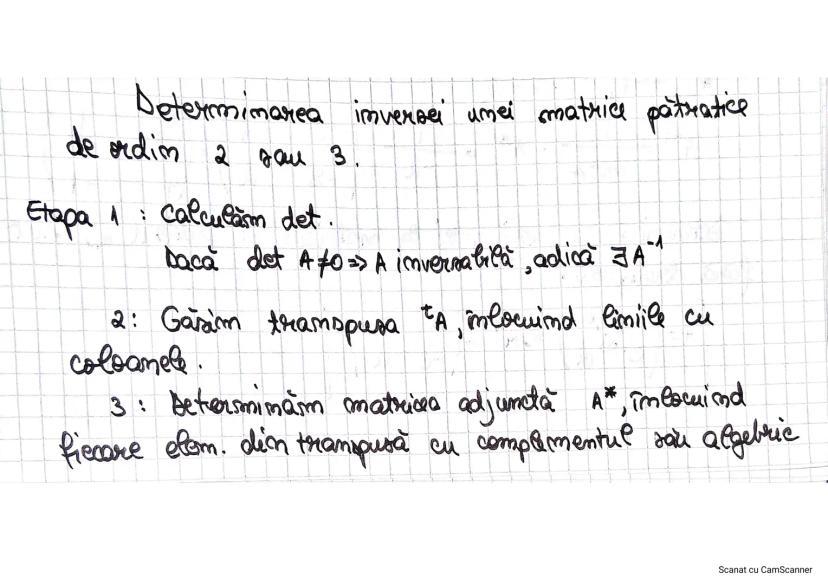 Determinarea inversei unei matrice pătratice
de ordin 2 sau 3.
Etapa 1 : Calculăm det.
Dacă det A≠0 => A inversabilă, adică ∃A⁻¹
2: Găsim transpusa ᵗA, înlocuind liniile cu
coloanele.
3: Determinăm matricea adjunctă A*, înlocuind
fiecare elem. din transpusă cu complementul său algebric
Scanat cu CamScanner